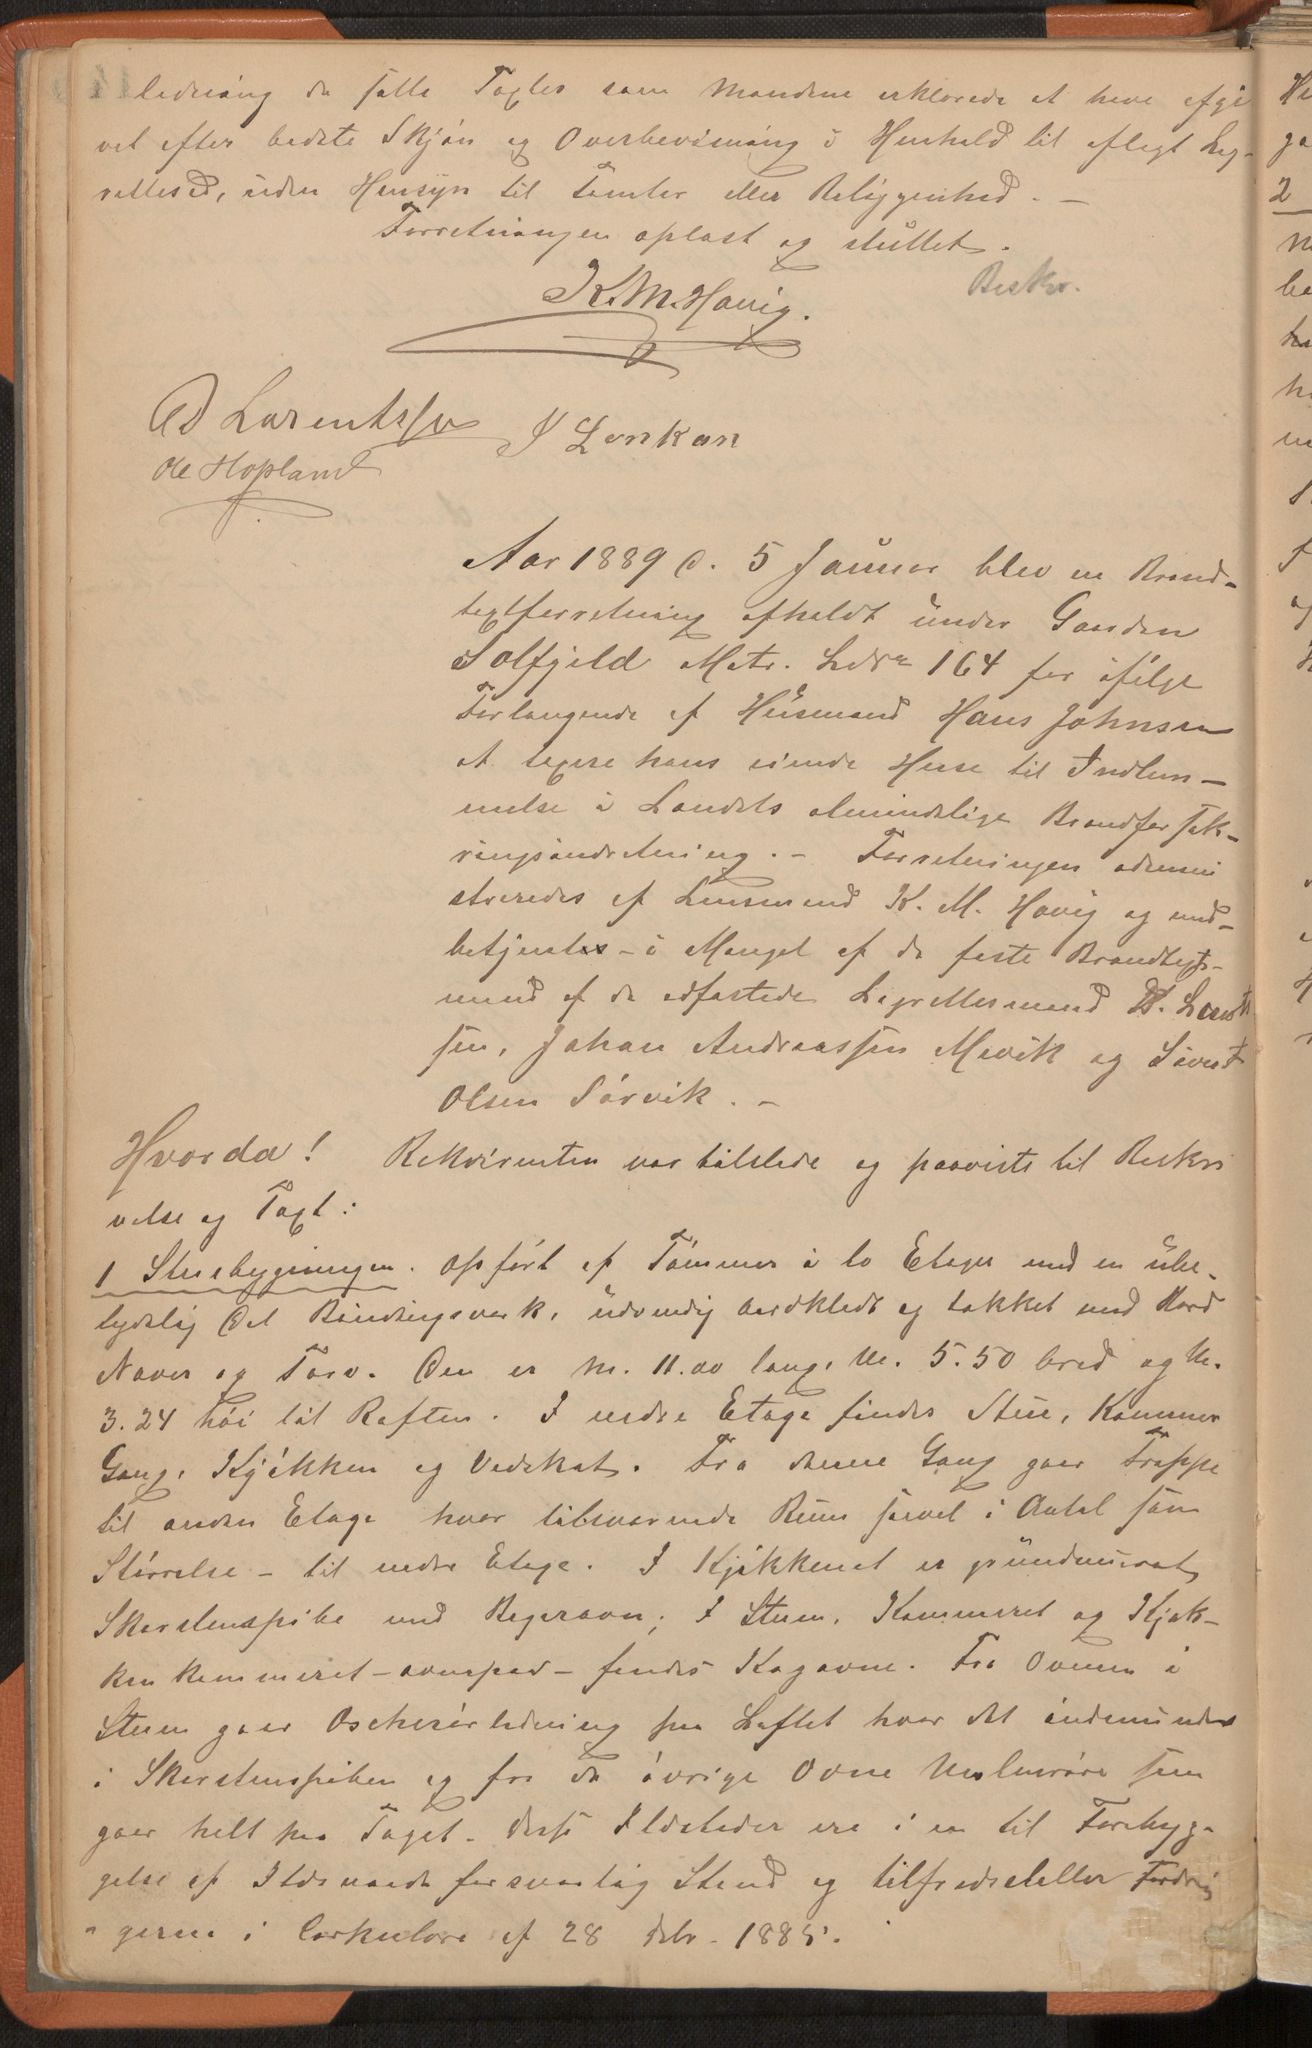 ledning de satte Taxter som Mændene erklærede at have afgi
vet efter bedste Skjøn og Overbevisning i Henhold til aflagt Lag-
rettesed, uden Hensyn til Tomter eller Beliggenhed. –
Forretningen oplæst og sluttet.
Beskr.
K. M. Havig.
Ad Larentsen J Lenkan
Ole Hopland
Aar 1889 d. 5 Januar blev en Brand-
taxtforretning afholdt under Gaarden
Solfjeld Matr. Lbnr 164 for ifølge
Forlangende af Husmand Hans Johnsen
at taxere hans eiende Huse til Indlem-
melse i Landets almindelige Brandforsik-
ringsindretning. – Forretningen admini
streredes af Lensmand K. M. Havig og med-
betjentes – i Mangel af de faste Brandtaxt-
mænd af de edfæstede Lagrettesmænd A. Larents
sen, Johan Andreassen Mevik og Sivert
Olsen Sørvik. –
Hvorda! Rekvirenten var tilstede og paaviste til Beskri
velse og Taxt:
1 Stuebygningen. Opført af Tømmer i to Etager med en ube-
tydelig Del Bindingsværk, udvendig bordklædt og tækket med Bord
Næver og Torv. Den er M. 11.00 lang, M. 5.50 bred og M.
3.24 høi til Raften. I nedre Etage findes Stue, Kammer
Gang, Kjøkken og Vedskot. Fra denne Gang gaar Trappe
til anden Etage hvor tilsvarende Rum saavel i Antal som
Størrelse – til nedre Etage. I Kjøkkenet er grundmuret
Skorstenspibe med Bagerovn; I Stuen, Kammeret og Kjøk-
ken kammeret – ovenpaa – findes Kogovne. Fra Ovnen i
Stuen gaar Rørledning paa Loftet hvor det indmunder
i Skorstenspiben og fra de øvrige Ovne som
gaar helt paa Taget. Disse Ildsteder ere i en til Forebyg-
gelse af Ildsvaade forsvarlig Stand og tilfredsstiller Fordrin
gerne i Cirkulære af 28 Febr. 1885.